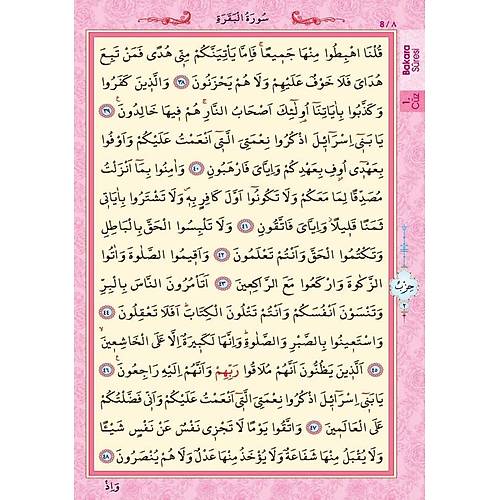 سُورَةُ الْبَقَرَةِ
8 / ٨
Bakara
Sûresi
1.
Cüz
قُلْنَا اهْبِطُوا مِنْهَا جَمٖيعًاۚ فَاِمَّا يَاْتِيَنَّكُمْ مِنّٖي هُدًى فَمَنْ تَبِعَ
هُدَايَ فَلَا خَوْفٌ عَلَيْهِمْ وَلَا هُمْ يَحْزَنُونَ ٣٨ وَالَّذٖينَ كَفَرُوا
وَكَذَّبُوا بِاٰيَاتِنَٓا اُولٰٓئِكَ اَصْحَابُ النَّارِۚ هُمْ فٖيهَا خَالِدُونَ ٣٩
يَا بَنٖٓي اِسْرَٓائٖلَ اذْكُرُوا نِعْمَتِيَ الَّتٖٓي اَنْعَمْتُ عَلَيْكُمْ وَاَوْفُوا
بِعَهْدٖٓي اُوفِ بِعَهْدِكُمْ وَاِيَّايَ فَارْهَبُونِ ٤٠ وَاٰمِنُوا بِمَٓا اَنْزَلْتُ
مُصَدِّقًا لِمَا مَعَكُمْ وَلَا تَكُونُٓوا اَوَّلَ كَافِرٍ بِهٖ وَلَا تَشْتَرُوا بِاٰيَاتٖي
ثَمَنًا قَلٖيلًا وَاِيَّايَ فَاتَّقُونِ ٤١ وَلَا تَلْبِسُوا الْحَقَّ بِالْبَاطِلِ
وَتَكْتُمُوا الْحَقَّ وَاَنْتُمْ تَعْلَمُونَ ٤٢ وَاَقٖيمُوا الصَّلٰوةَ وَاٰتُوا
الزَّكٰوةَ وَارْكَعُوا مَعَ الرَّاكِعٖينَ ٤٣ اَتَاْمُرُونَ النَّاسَ بِالْبِرِّ
وَتَنْسَوْنَ اَنْفُسَكُمْ وَاَنْتُمْ تَتْلُونَ الْكِتَابَۜ اَفَلَا تَعْقِلُونَ ٤٤
وَاسْتَعٖينُوا بِالصَّبْرِ وَالصَّلٰوةِۜ وَاِنَّهَا لَكَبٖيرَةٌ اِلَّا عَلَى الْخَاشِعٖينَۙ
٤٥ اَلَّذٖينَ يَظُنُّونَ اَنَّهُمْ مُلَاقُوا رَبِّهِمْ وَاَنَّهُمْ اِلَيْهِ رَاجِعُونَ ٤٦
يَا بَنٖٓي اِسْرَٓائٖلَ اذْكُرُوا نِعْمَتِيَ الَّتٖٓي اَنْعَمْتُ عَلَيْكُمْ وَاَنّٖي فَضَّلْتُكُمْ
عَلَى الْعَالَمٖينَ ٤٧ وَاتَّقُوا يَوْمًا لَا تَجْزٖي نَفْسٌ عَنْ نَفْسٍ شَيْـًٔا
وَلَا يُقْبَلُ مِنْهَا شَفَاعَةٌ وَلَا يُؤْخَذُ مِنْهَا عَدْلٌ وَلَا هُمْ يُنْصَرُونَ ٤٨
حِزْبُ
٢
وَاِذْ